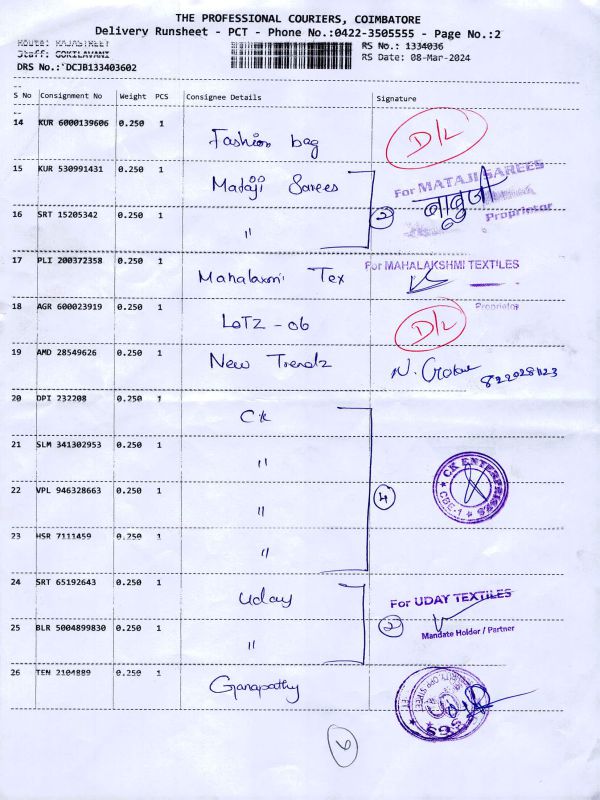 THE PROFESSIONAL COURIERS, COIMBATORE
Delivery Runsheet - PCT - Phone No.:0422-3505555 - Page No.:2
Route: RAJASTREET
RS No.: 1334036
Staff: GOKILAVANI
RS Date: 08-Mar-2024
DRS No.:`DCJB133403602
S No Consignment No Weight PCS Consignee Details Signature
14 KUR 6000139606 0.250 1 Fashion bag D/L
15 KUR 530991431 0.250 1 Mataji Sarees For MATAJI SAREES
16 SRT 15205342 0.250 1 " 2 Proprietor
17 PLI 200372358 0.250 1 Mahalaxmi Tex For MAHALAKSHMI TEXTILES
Proprietor
18 AGR 600023919 0.250 1 LOTZ - 06 D/L
19 AMD 28549626 0.250 1 New Trendz
20 DPI 232208 0.250 1 CK
21 SLM 341302953 0.250 1 " CK ENTERPRISES
22 VPL 946328663 0.250 1 " 4 CBE-1
23 HSR 7111459 0.250 1 "
24 SRT 65192643 0.250 1 Uday For UDAY TEXTILES
25 BLR 5004899830 0.250 1 " 2 Mandate Holder / Partner
26 TEN 2104889 0.250 1 Ganapathy
6